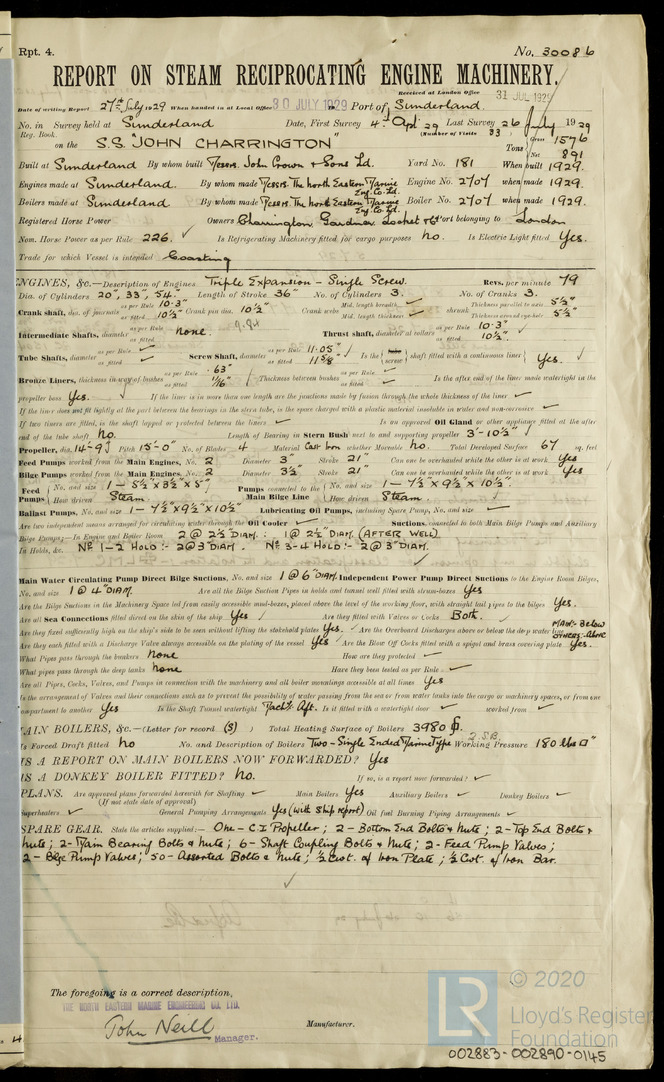 Rpt. 4. No. 30086
REPORT ON STEAM RECIPROCATING ENGINE MACHINERY.
Received at London Office 31 JUL 1929
Date of writing Report 27th July 1929 When handed in at Local Office 30 JULY 1929 Port of Sunderland.
No. in Survey held at Sunderland Date, First Survey 4th Apl 29 Last Survey 26 July 1929
Reg. Book. (Number of Visits 33)
on the S.S. JOHN CHARRINGTON Tons Gross 1576 Net 891
Built at Sunderland By whom built Messrs. John Crown & Sons Ld. Yard No. 181 When built 1929.
Engines made at Sunderland. By whom made Messrs. The North Eastern Marine Eng. Co. Ld. Engine No. 2707 when made 1929.
Boilers made at Sunderland By whom made Messrs. The North Eastern Marine Eng. Co. Ld. Boiler No. 2707 when made 1929.
Registered Horse Power Owners Charrington Gardner Locket & Co Port belonging to London
Nom. Horse Power as per Rule 226. ✓ Is Refrigerating Machinery fitted for cargo purposes No. Is Electric Light fitted Yes.
Trade for which Vessel is intended Coasting
ENGINES, &c.—Description of Engines Triple Expansion - Single Screw. Revs. per minute 79
Dia. of Cylinders 20", 33", 54". Length of Stroke 36" No. of Cylinders 3. No. of Cranks 3.
Crank shaft, dia. of journals as per Rule 10.3" as fitted 10½" Crank pin dia. 10½" Crank webs Mid. length breadth ✓ Mid. length thickness ✓ shrunk Thickness parallel to axis 5½" Thickness around eye-hole 5½"
9.94
Intermediate Shafts, diameter as per Rule as fitted none. Thrust Shaft, diameter at collars as per Rule 10.3" as fitted 10½"
Tube Shafts, diameter as per Rule ✓ as fitted ✓ Screw Shaft, diameter as per Rule 11.05" as fitted 11⅝" Is the screw shaft fitted with a continuous liner Yes. ✓
Bronze Liners, thickness in way of bushes as per Rule .63" as fitted 11/16" Thickness between bushes as per Rule ✓ as fitted ✓ Is the after end of the liner made watertight in the
propeller boss Yes. If the liner is in more than one length are the junctions made by fusion through the whole thickness of the liner ✓
If the liner does not fit tightly at the part between the bearings in the stern tube, is the space charged with a plastic material insoluble in water and non-corrosive ✓
If two liners are fitted, is the shaft lapped or protected between the liners ✓ Is an approved Oil Gland or other appliance fitted at the after
end of the tube shaft No. Length of Bearing in Stern Bush next to and supporting propeller 3'-10½" ✓
Propeller, dia. 14'-9" Pitch 15'-0" No. of Blades 4 Material Cast Iron whether Moveable No. Total Developed Surface 67 sq. feet
Feed Pumps worked from the Main Engines, No. 2 Diameter 3" Stroke 21" Can one be overhauled while the other is at work Yes
Bilge Pumps worked from the Main Engines, No. 2 Diameter 3½" Stroke 21" Can one be overhauled while the other is at work Yes
Feed Pumps No. and size 1 - 5½" x 3½" x 5" How driven Steam. Pumps connected to the Main Bilge Line No. and size 1 - 7½" x 9½" x 10½" How driven Steam.
Ballast Pumps, No. and size 1 - 7½" x 9½" x 10½" Lubricating Oil Pumps, including Spare Pump, No. and size ✓
Are two independent means arranged for circulating water through the Oil Cooler ✓ Suctions, connected to both Main Bilge Pumps and Auxiliary
Bilge Pumps;—In Engine and Boiler Room 2 @ 2½" DIAM. : 1 @ 2½" DIAM. (AFTER WELL)
In Holds, &c. No 1-2 HOLD :- 2 @ 3" DIAM. No 3-4 HOLD :- 2 @ 3" DIAM.
Main Water Circulating Pump Direct Bilge Suctions, No. and size 1 @ 6" DIAM. Independent Power Pump Direct Suctions to the Engine Room Bilges,
No. and size 1 @ 4" DIAM. Are all the Bilge Suction Pipes in holds and tunnel well fitted with strum-boxes Yes
Are the Bilge Suctions in the Machinery Space led from easily accessible mud-boxes, placed above the level of the working floor, with straight tail pipes to the bilges Yes.
Are all Sea Connections fitted direct on the skin of the ship Yes Are they fitted with Valves or Cocks Both.
Are they fixed sufficiently high on the ship's side to be seen without lifting the stokehold plates Yes. Are the Overboard Discharges above or below the deep water line MAIN:- Below OTHERS:- Above
Are they each fitted with a Discharge Valve always accessible on the plating of the vessel Yes Are the Blow Off Cocks fitted with a spigot and brass covering plate Yes.
What Pipes pass through the bunkers None How are they protected ✓
What pipes pass through the deep tanks None Have they been tested as per Rule ✓
Are all Pipes, Cocks, Valves, and Pumps in connection with the machinery and all boiler mountings accessible at all times Yes
Is the arrangement of Valves and their connections such as to prevent the possibility of water passing from the sea or from water tanks into the cargo or machinery spaces, or from one
compartment to another Yes Is the Shaft Tunnel watertight Machy. Aft. Is it fitted with a watertight door ✓ worked from ✓
MAIN BOILERS, &c.—(Letter for record (S)) Total Heating Surface of Boilers 3980
2.S.B.
Is Forced Draft fitted No No. and Description of Boilers Two - Single Ended Marine Type Working Pressure 180 lbs □"
IS A REPORT ON MAIN BOILERS NOW FORWARDED? Yes
IS A DONKEY BOILER FITTED? No. If so, is a report now forwarded? ✓
PLANS. Are approved plans forwarded herewith for Shafting ✓ Main Boilers Yes Auxiliary Boilers ✓ Donkey Boilers ✓
(If not state date of approval)
Superheaters ✓ General Pumping Arrangements Yes (with Ship report) Oil fuel Burning Piping Arrangements ✓
SPARE GEAR. State the articles supplied:— One - C I Propeller ; 2 - Bottom End Bolts & Nuts ; 2 - Top End Bolts &
Nuts ; 2 - Main Bearing Bolts & Nuts ; 6 - Shaft Coupling Bolts & Nuts ; 2 - Feed Pump Valves ;
2 - Bilge Pump Valves ; 50 - Assorted Bolts & Nuts ; ½ Cwt. of Iron Plate ; ½ Cwt. of Iron Bar.
✓
The foregoing is a correct description,
THE NORTH EASTERN MARINE ENGINEERING CO. LTD.
John Neill Manager. Manufacturer.
LR © 2020
Lloyd's Register
Foundation
002883-002890-0145